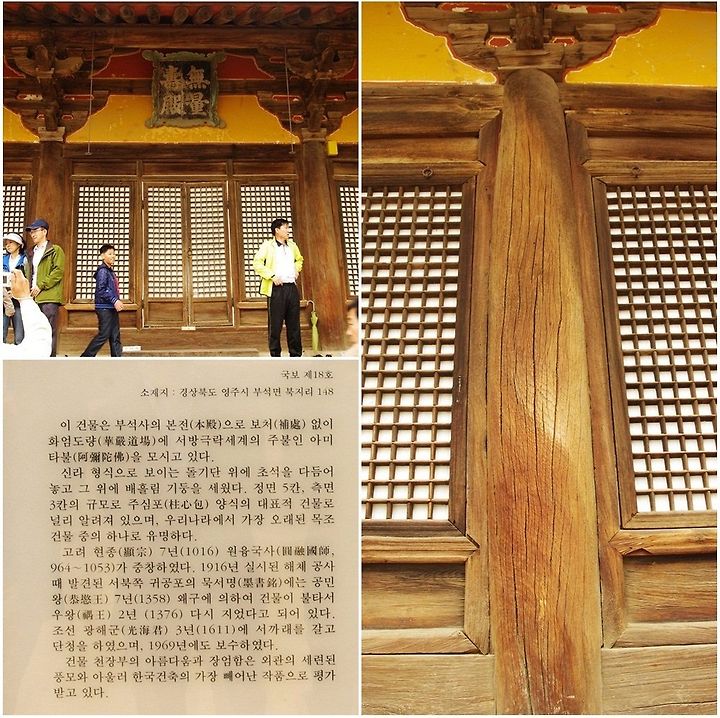 無量
壽殿
국보 제18호
소재지 : 경상북도 영주시 부석면 북지리 148
이 건물은 부석사의 본전(本殿)으로 보처(補處) 없이
화엄도량(華嚴道場)에 서방극락세계의 주불인 아미
타불(阿彌陀佛)을 모시고 있다.
신라 형식으로 보이는 돌기단 위에 초석을 다듬어
놓고 그 위에 배흘림 기둥을 세웠다. 정면 5칸, 측면
3칸의 규모로 주심포(柱心包) 양식의 대표적 건물로
널리 알려져 있으며, 우리나라에서 가장 오래된 목조
건물 중의 하나로 유명하다.
고려 현종(顯宗) 7년(1016) 원융국사(圓融國師,
964~1053)가 중창하였다. 1916년 실시된 해체 공사
때 발견된 서북쪽 귀공포의 묵서명(墨書銘)에는 공민
왕(恭愍王) 7년(1358) 왜구에 의하여 건물이 불타서
우왕(禑王) 2년 (1376) 다시 지었다고 되어 있다.
조선 광해군(光海君) 3년(1611)에 서까래를 갈고
단청을 하였으며, 1969년에도 보수하였다.
건물 천장부의 아름다움과 장엄함은 외관의 세련된
풍모와 아울러 한국건축의 가장 빼어난 작품으로 평가
받고 있다.